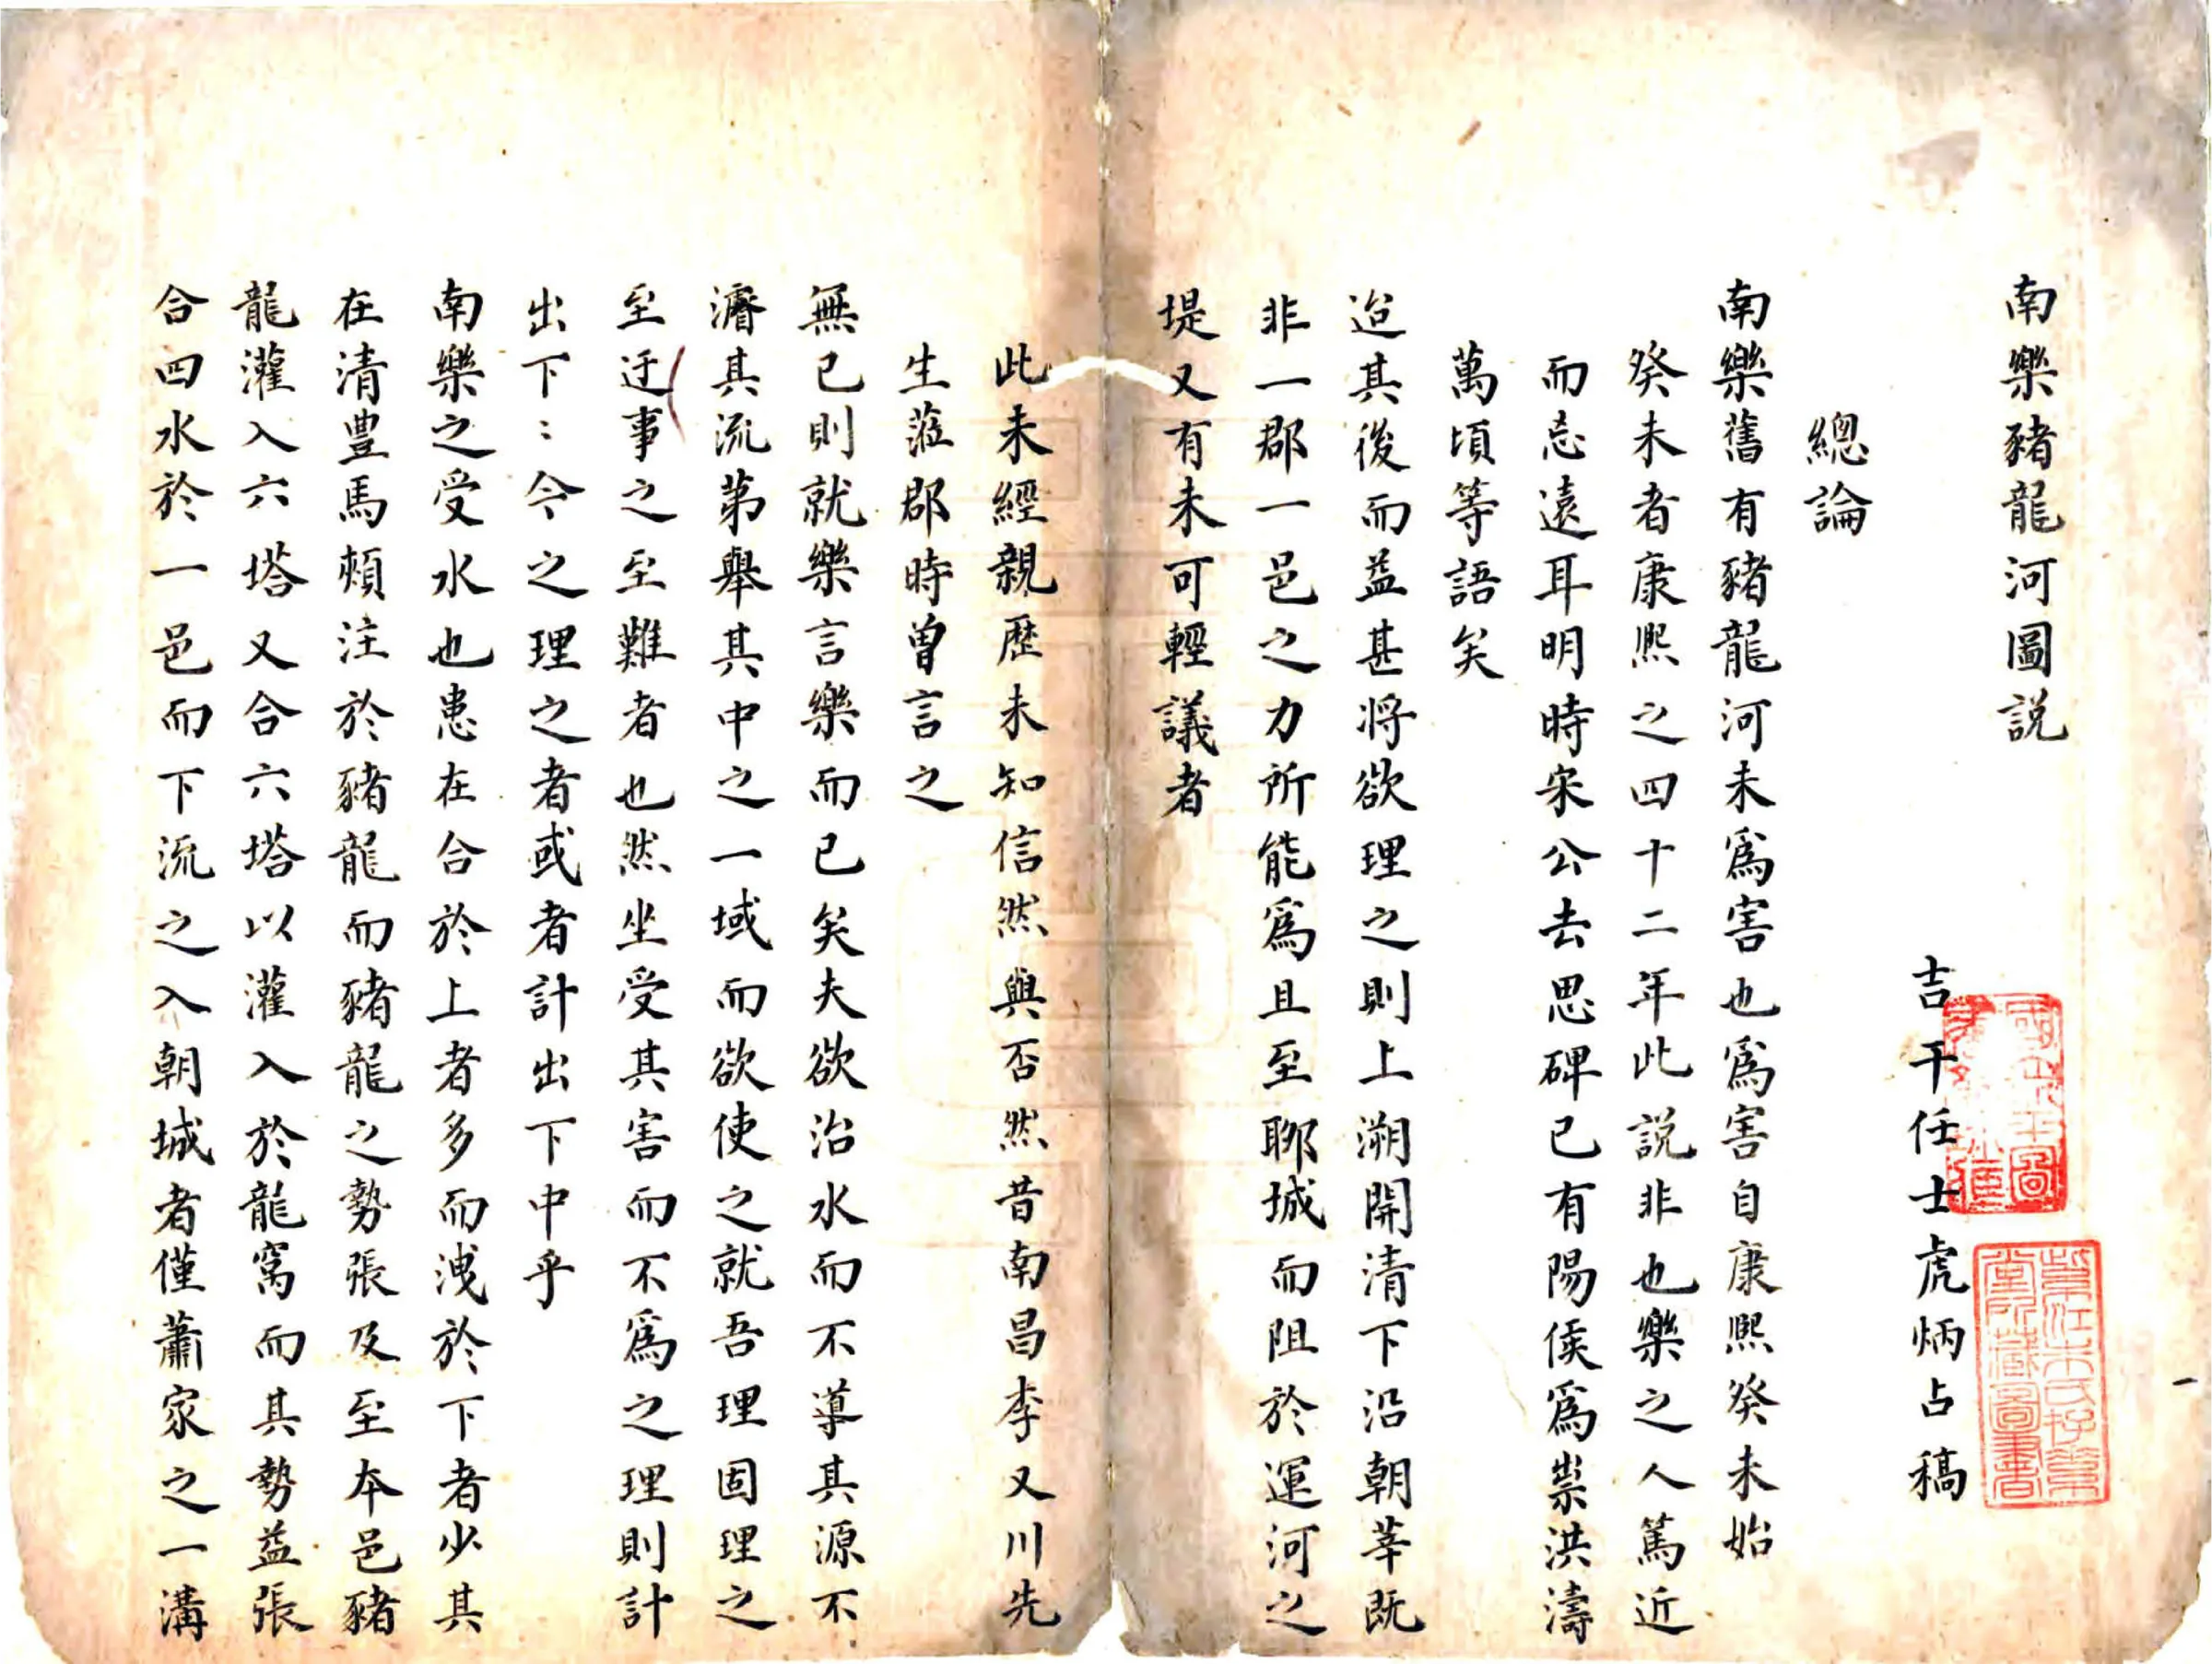 南樂豬龍河圖説
吉干任士虎炳占稿
總論
南樂舊有豬龍河未爲害也爲害自康熙癸未始
癸未者康熙之四十二年此説非也樂之人篤近
而忘遠耳明時宋公去思碑已有陽侯爲祟洪濤
萬頃等語矣
迨其後而益甚將欲理之則上溯開清下沿朝莘既
非一郡一邑之力所能爲且至聊城而阻於運河之
堤又有未可輕議者
此未經親歷未知信然與否然昔南昌李又川先
生蒞郡時曾言之
無已則就樂言樂而已矣夫欲治水而不導其源不
濬其流第舉其中之一域而欲使之就吾理固理之
至迂事之至難者也然坐受其害而不爲之理則計
出下：今之理之者或者計出下中乎
南樂之受水也患在合於上者多而洩於下者少其
在清豊馬頰注於豬龍而豬龍之勢張及至本邑豬
龍灌入六塔又合六塔以灌入於龍窩而其勢益張
合四水於一邑而下流之入朝城者僅蕭家之一溝